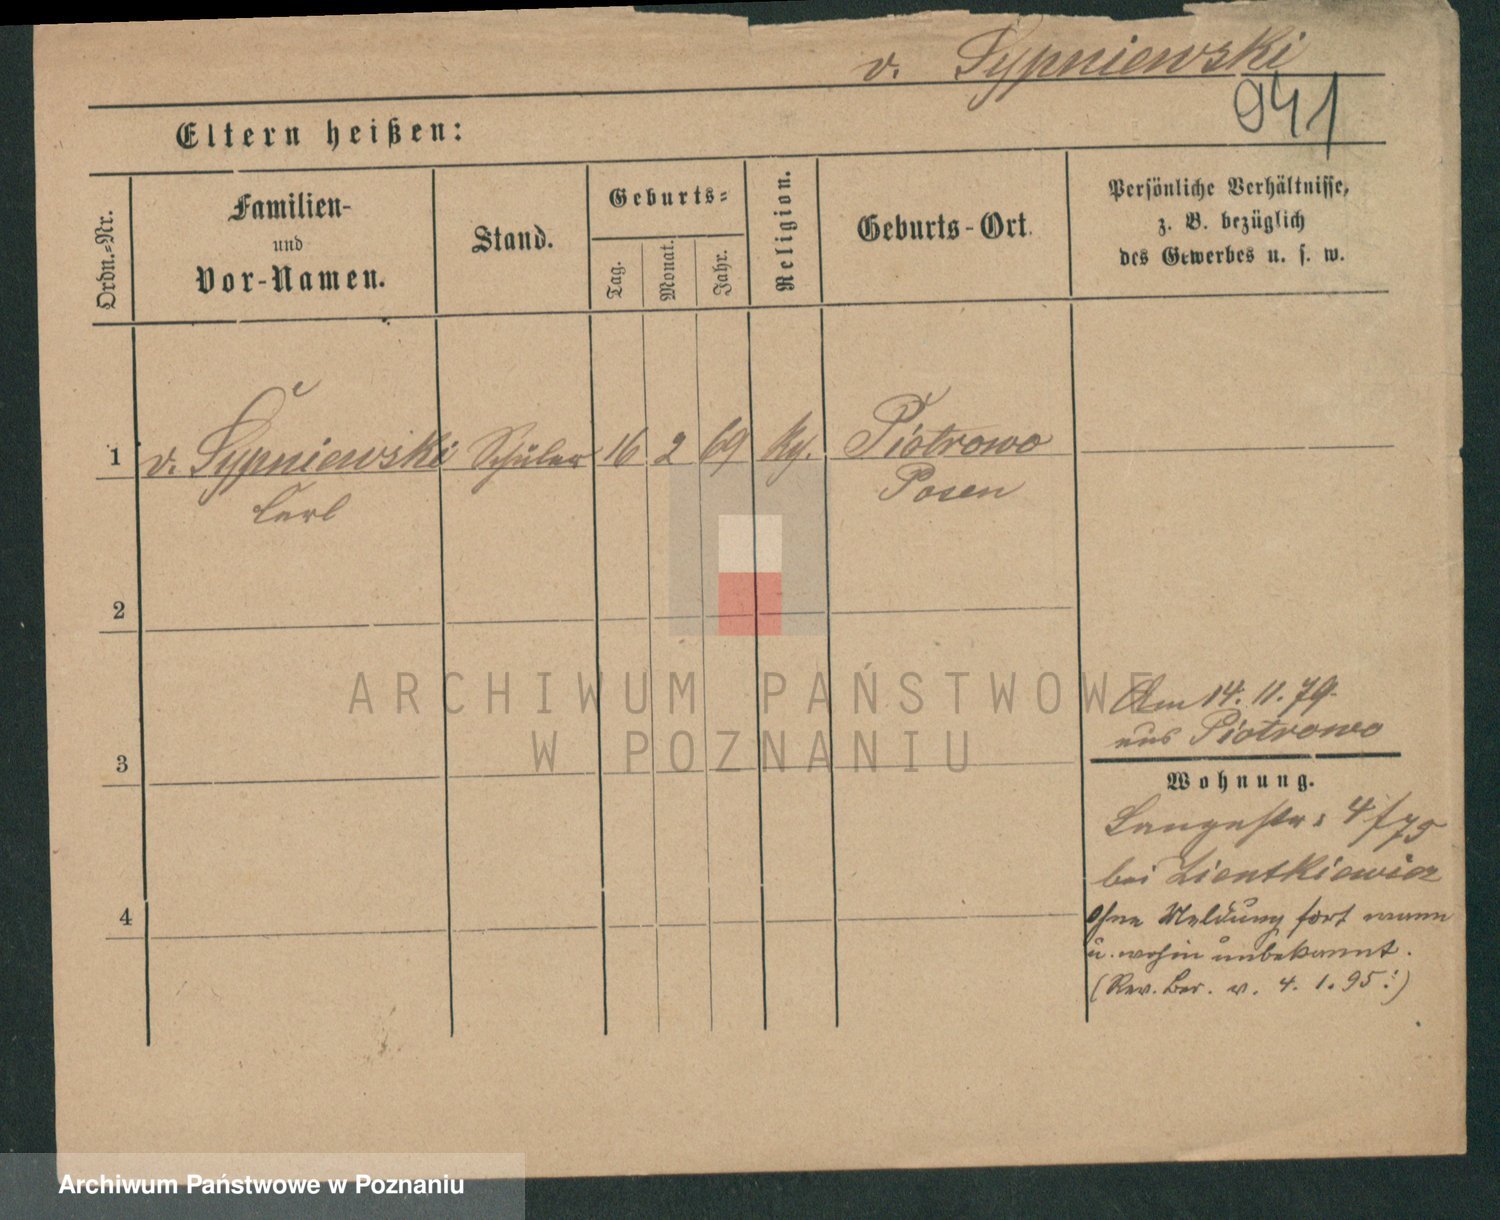 v. Sypniewski
941
Eltern heißen:
Ordn.-Nr.
Familien-
und
Vor-Namen.
Stand.
Geburts-
Tag.
Monat.
Jahr.
Religion.
Geburts-Ort.
Persönliche Verhältnisse,
z. B. bezüglich
des Gewerbes u. s. w.
1 v. Sypniewski Schüler 16 2 69 Kg. Piotrowo
Carl Posen
2
3
4
Am 14. 11. 79.
aus Piotrowo
Wohnung.
Langestr: 4
bei Zientkiewicz
ohne Meldung fort wann
u. wohin unbekannt.
(Rev. Ber. v. 4. 1. 95.)
ARCHIWUM PAŃSTWOWE
W POZNANIU
Archiwum Państwowe w Poznaniu